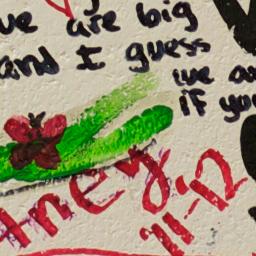 we are big
and I guess
we a
if you
tney
11-12